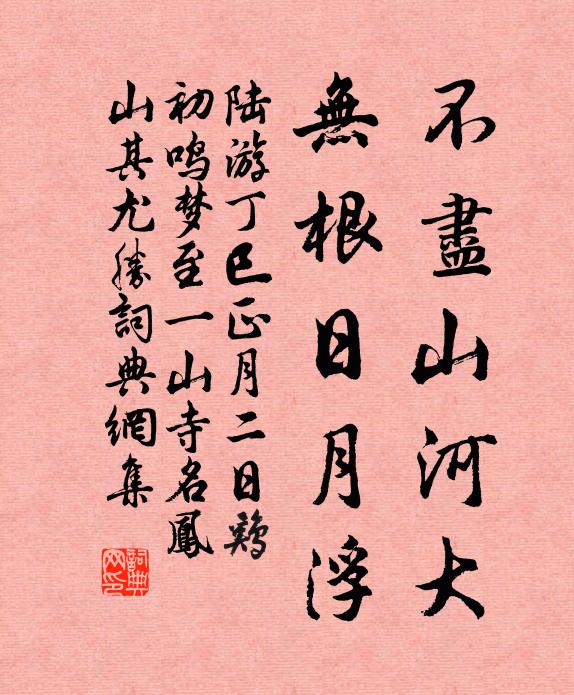 不盡山河大
無根日月浮
陆游丁巳正月二日鸡
初鸣梦至一山寺名鳳
山其尤勝詞典網集
詞典
网印